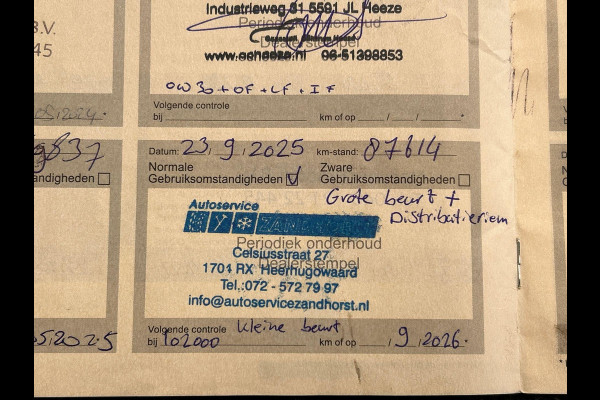 Industrieweg 31 5591 JL Heeze
Periodiek onderhoud
Dealerstempel
www.ocheeze.nl 06-51398853
B.V.
45
OW30 + OF + LF + IF
Volgende controle
bij km of op / /
05,2024
837
andigheden
Datum: 23, 9, 2025 km-stand: 87614
Normale
Gebruiksomstandigheden V
Zware
Gebruiksomstandigheden
Grote beurt +
Distributieriem
Autoservice
ZANDHORST
Periodiek onderhoud
Dealerstempel
Celsiusstraat 27
1704 RX Heerhugowaard
Tel.:072 - 572 79 97
info@autoservicezandhorst.nl
Volgende controle kleine beurt
bij 102000 km of op / 9, 2026
5,2025